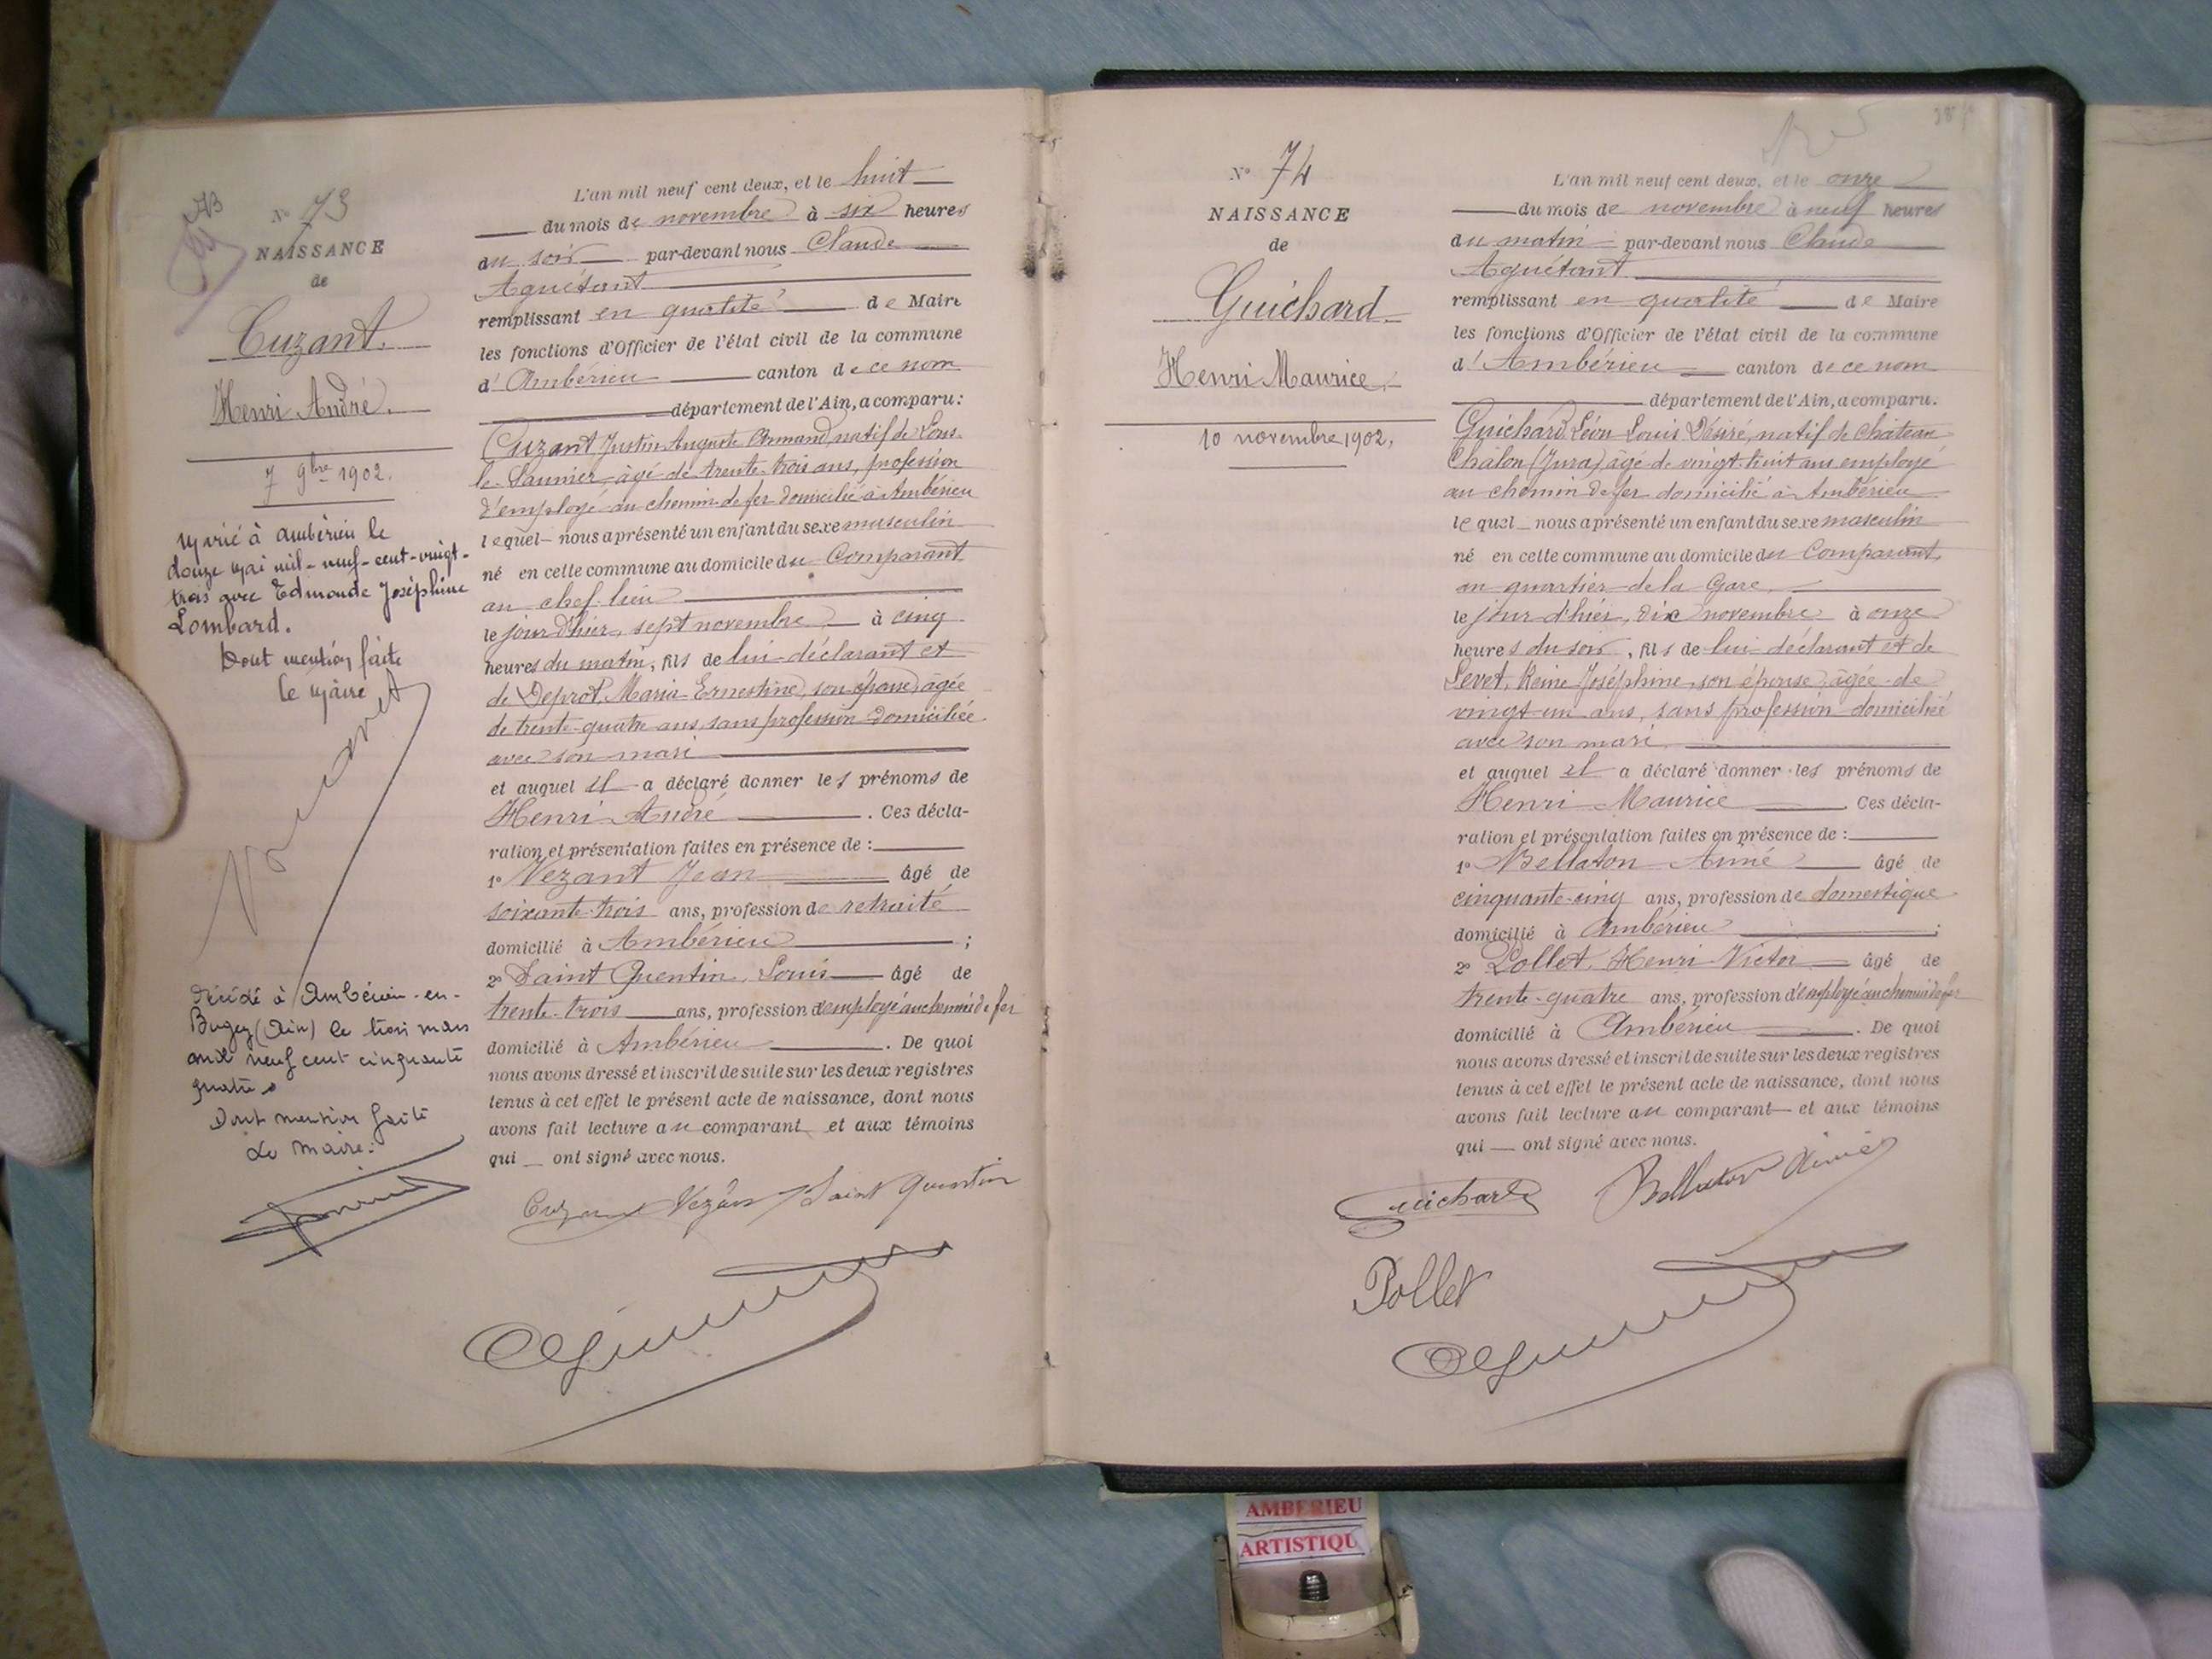 N° 73
NAISSANCE
de
Cuzant.
Henri André.
7 9bre 1902.
Marié à Ambérieu le
douze mai mil-neuf-cent-vingt-
trois avec Edmonde Joséphine
Lombard.
Dont mention faite
Le Maire
Décédé à Ambérieu-en-
Bugey (Ain) le trois mars
mil neuf cent cinquante
quatre
Dont mention faite
Le Maire:
L'an mil neuf cent deux, et le huit
du mois de novembre à six heures
du soir par-devant nous Claude
Aguétant
remplissant en qualité de Maire
les fonctions d'Officier de l'état civil de la commune
d'Ambérieu canton de ce nom
département de l'Ain, a comparu:
Cuzant Justin Auguste Armand, natif de Lons-
le-Saunier, âgé de trente-trois ans, profession
d'employé au chemin de fer domicilié à Ambérieu
lequel nous a présenté un enfant du sexe masculin
né en cette commune au domicile du Comparant
au chef-lieu
le jour d'hier, sept novembre à cinq
heures du matin, fils de lui-déclarant et
de Deprot, Maria Ernestine, son épouse, âgée
de trente-quatre ans, sans profession domiciliée
avec son mari
et auquel il a déclaré donner les prénoms de
Henri André. Ces décla-
ration et présentation faites en présence de :
1° Vezant Jean âgé de
soixante-trois ans, profession de retraité
domicilié à Ambérieu ;
2° Saint Quentin, Louis âgé de
trente-trois ans, profession d'employé au chemin de fer
domicilié à Ambérieu. De quoi
nous avons dressé et inscrit de suite sur les deux registres
tenus à cet effet le présent acte de naissance, dont nous
avons fait lecture au comparant et aux témoins
qui ont signé avec nous.
Saint Quentin
N° 74
NAISSANCE
de
Guichard
Henri Maurice
10 novembre 1902.
L'an mil neuf cent deux, et le onze
du mois de novembre à neuf heures
du matin par-devant nous Claude
Aguétant
remplissant en qualité de Maire
les fonctions d'Officier de l'état civil de la commune
d'Ambérieu canton de ce nom
département de l'Ain, a comparu.
Guichard, Léon Louis Désiré, natif de Château
Châlon (Jura) âgé de vingt-huit ans employé
au chemin de fer domicilié à Ambérieu
lequel nous a présenté un enfant du sexe masculin
né en cette commune au domicile du Comparant,
au quartier de la Gare.
le jour d'hier, dix novembre à onze
heures du soir, fils de lui-déclarant et de
Levet, Reine Joséphine, son épouse, âgée de
vingt-un ans, sans profession domiciliée
avec son mari.
et auquel il a déclaré donner les prénoms de
Henri Maurice. Ces décla-
ration et présentation faites en présence de :
1° Bellaton Aimé âgé de
cinquante-cinq ans, profession de domestique
domicilié à Ambérieu ;
2° Pollet, Henri Victor âgé de
trente-quatre ans, profession d'employé au chemin de fer
domicilié à Ambérieu. De quoi
nous avons dressé et inscrit de suite sur les deux registres
tenus à cet effet le présent acte de naissance, dont nous
avons fait lecture au comparant et aux témoins
qui ont signé avec nous.
Guichard Bellaton Aimé
Pollet
AMBERIEU
ARTISTIQU